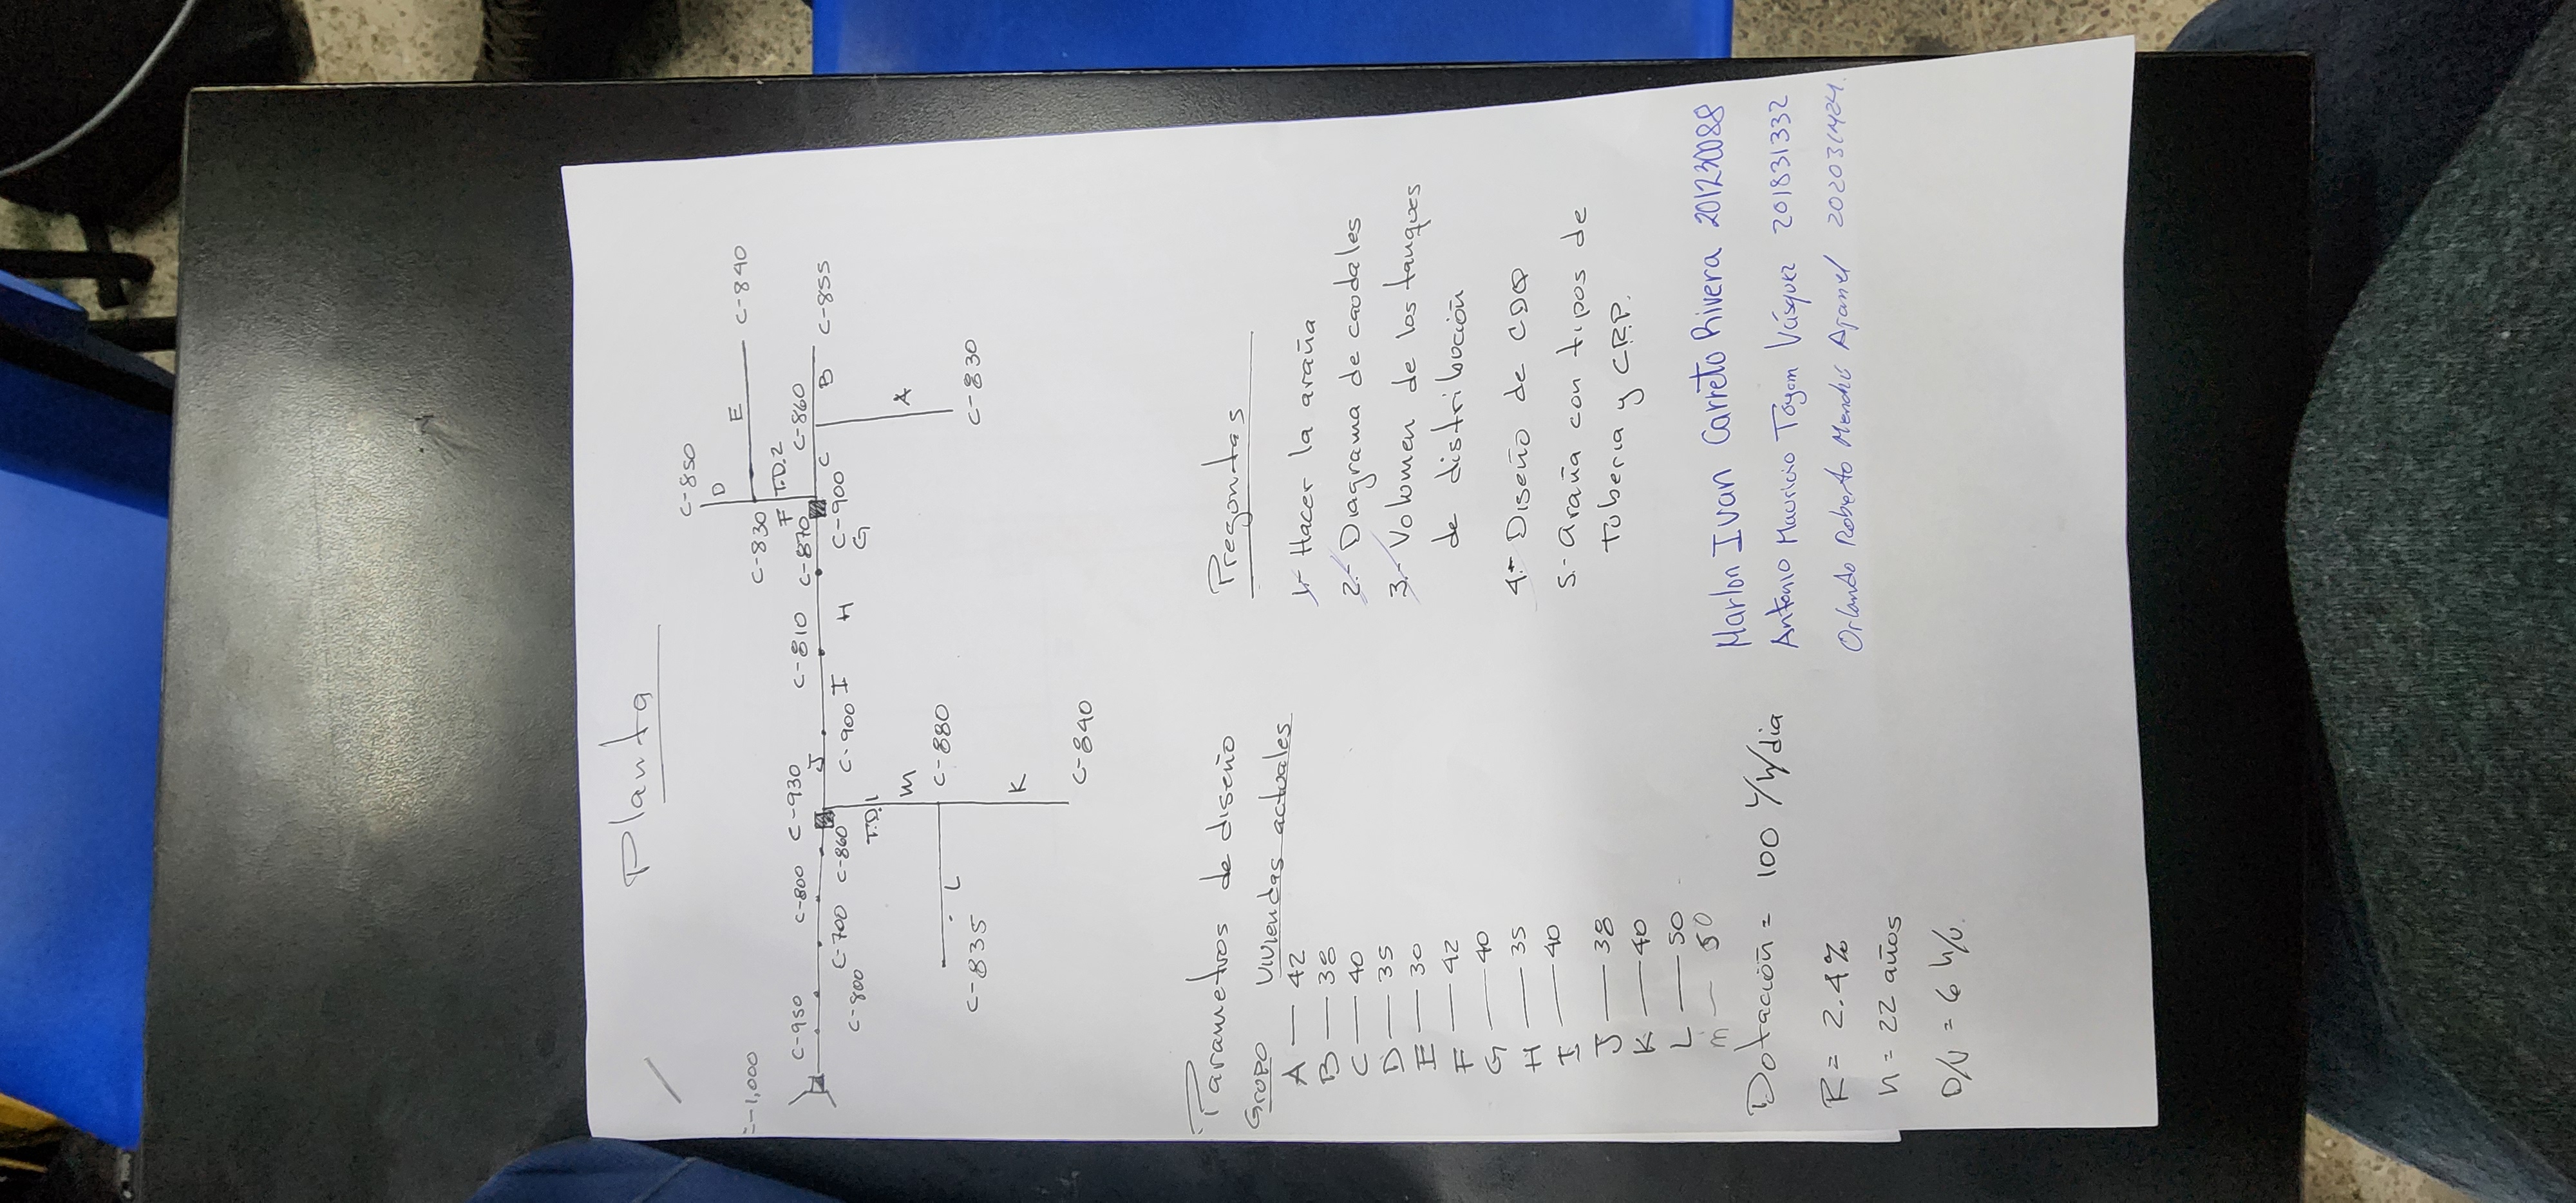 Planta
=-1,000
C-850
D
E
C-840
C-830
F
T.D.2
C-950
C-800
C-930
J
C-810
C-870
C-860
C-800
C-700
C-860
C-900
I
H
C-900
G
C
B
C-855
T.D.1
m
A
C-880
L
C-835
C-830
K
C-840
Parametros de diseño
Grupo Viviendas actuales
A — 42
B — 38
C — 40
D — 35
E — 30
F — 42
G — 40
H — 35
I — 40
J — 38
K — 40
L — 50
m — 50
Dotación = 100 l/h/dia
R = 2.4%
n = 22 años
D/v = 6 h/v.
Preguntas
1.- Hacer la araña
2.- Diagrama de caudales
3.- Volumen de los tanques
de distribución
4.- Diseño de CDQ
5.- araña con tipos de
tuberia y C.R.P.
Marlon Ivan Carreto Rivera 201230088
Antonio Mauricio Toyom Vásquez 201831332
Orlando Roberto Menchú Ajanel